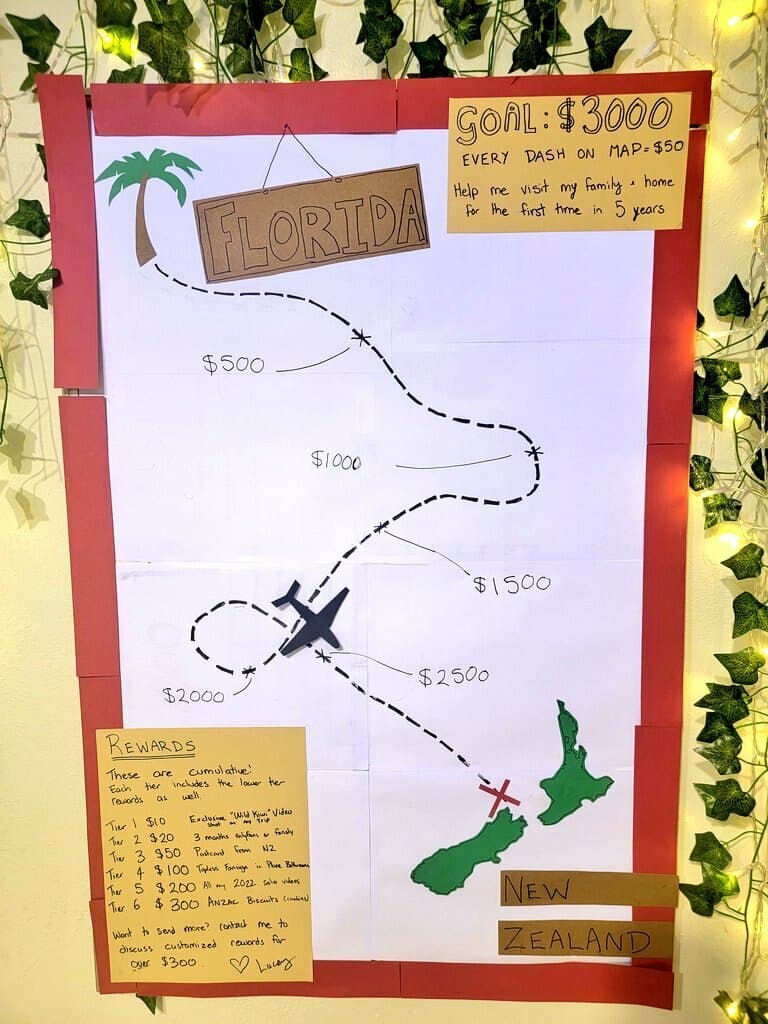 GOAL: $3000
EVERY DASH ON MAP = $50
Help me visit my family + home
for the first time in 5 years
FLORIDA
$500
$1000
$1500
$2000
$2500
REWARDS
These are cumulative!
Each tier includes the lower tier
rewards as well.
Tier 1 $10 Exclusive "Wild Kiwi" Video
shot on my trip
Tier 2 $20 3 months onlyfans or fansly
Tier 3 $50 Postcard from NZ
Tier 4 $100 Topless in Plane Bathroom
Tier 5 $200 All my 2022 solo videos
Tier 6 $300 ANZAC Biscuits (cookies)
Want to send more? contact me to
discuss customized rewards for
over $300
NEW
ZEALAND